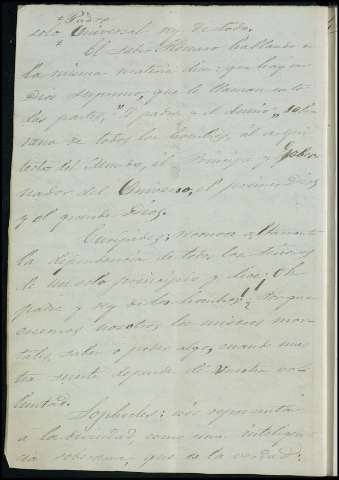 + Padre
solo Universal rey de todo.
+
El sabio Homero hablando de
la misma materia dice: que hay un
Dios supremo, que le llaman en to-
das partes, "El padre, el dueño", sobe-
rano de todos los hombres, el arqui-
tecto del Mundo, el Principio y Gober-
nador del Universo, el primer Dios
y el grande Dios.
Euripides: reconoce altamente
la dependencia de todos los
de un solo principio y dice: Oh
padre y rey de los hombres!! Porque
creemos nosotros los miseros mor-
tales, saber ó poder algo, cuando nues-
tra suerte depende de vuestra vo-
luntad.
Sophocles: nos representa
á la divinidad, como una inteligen-
cia soberana, que es la verdad;